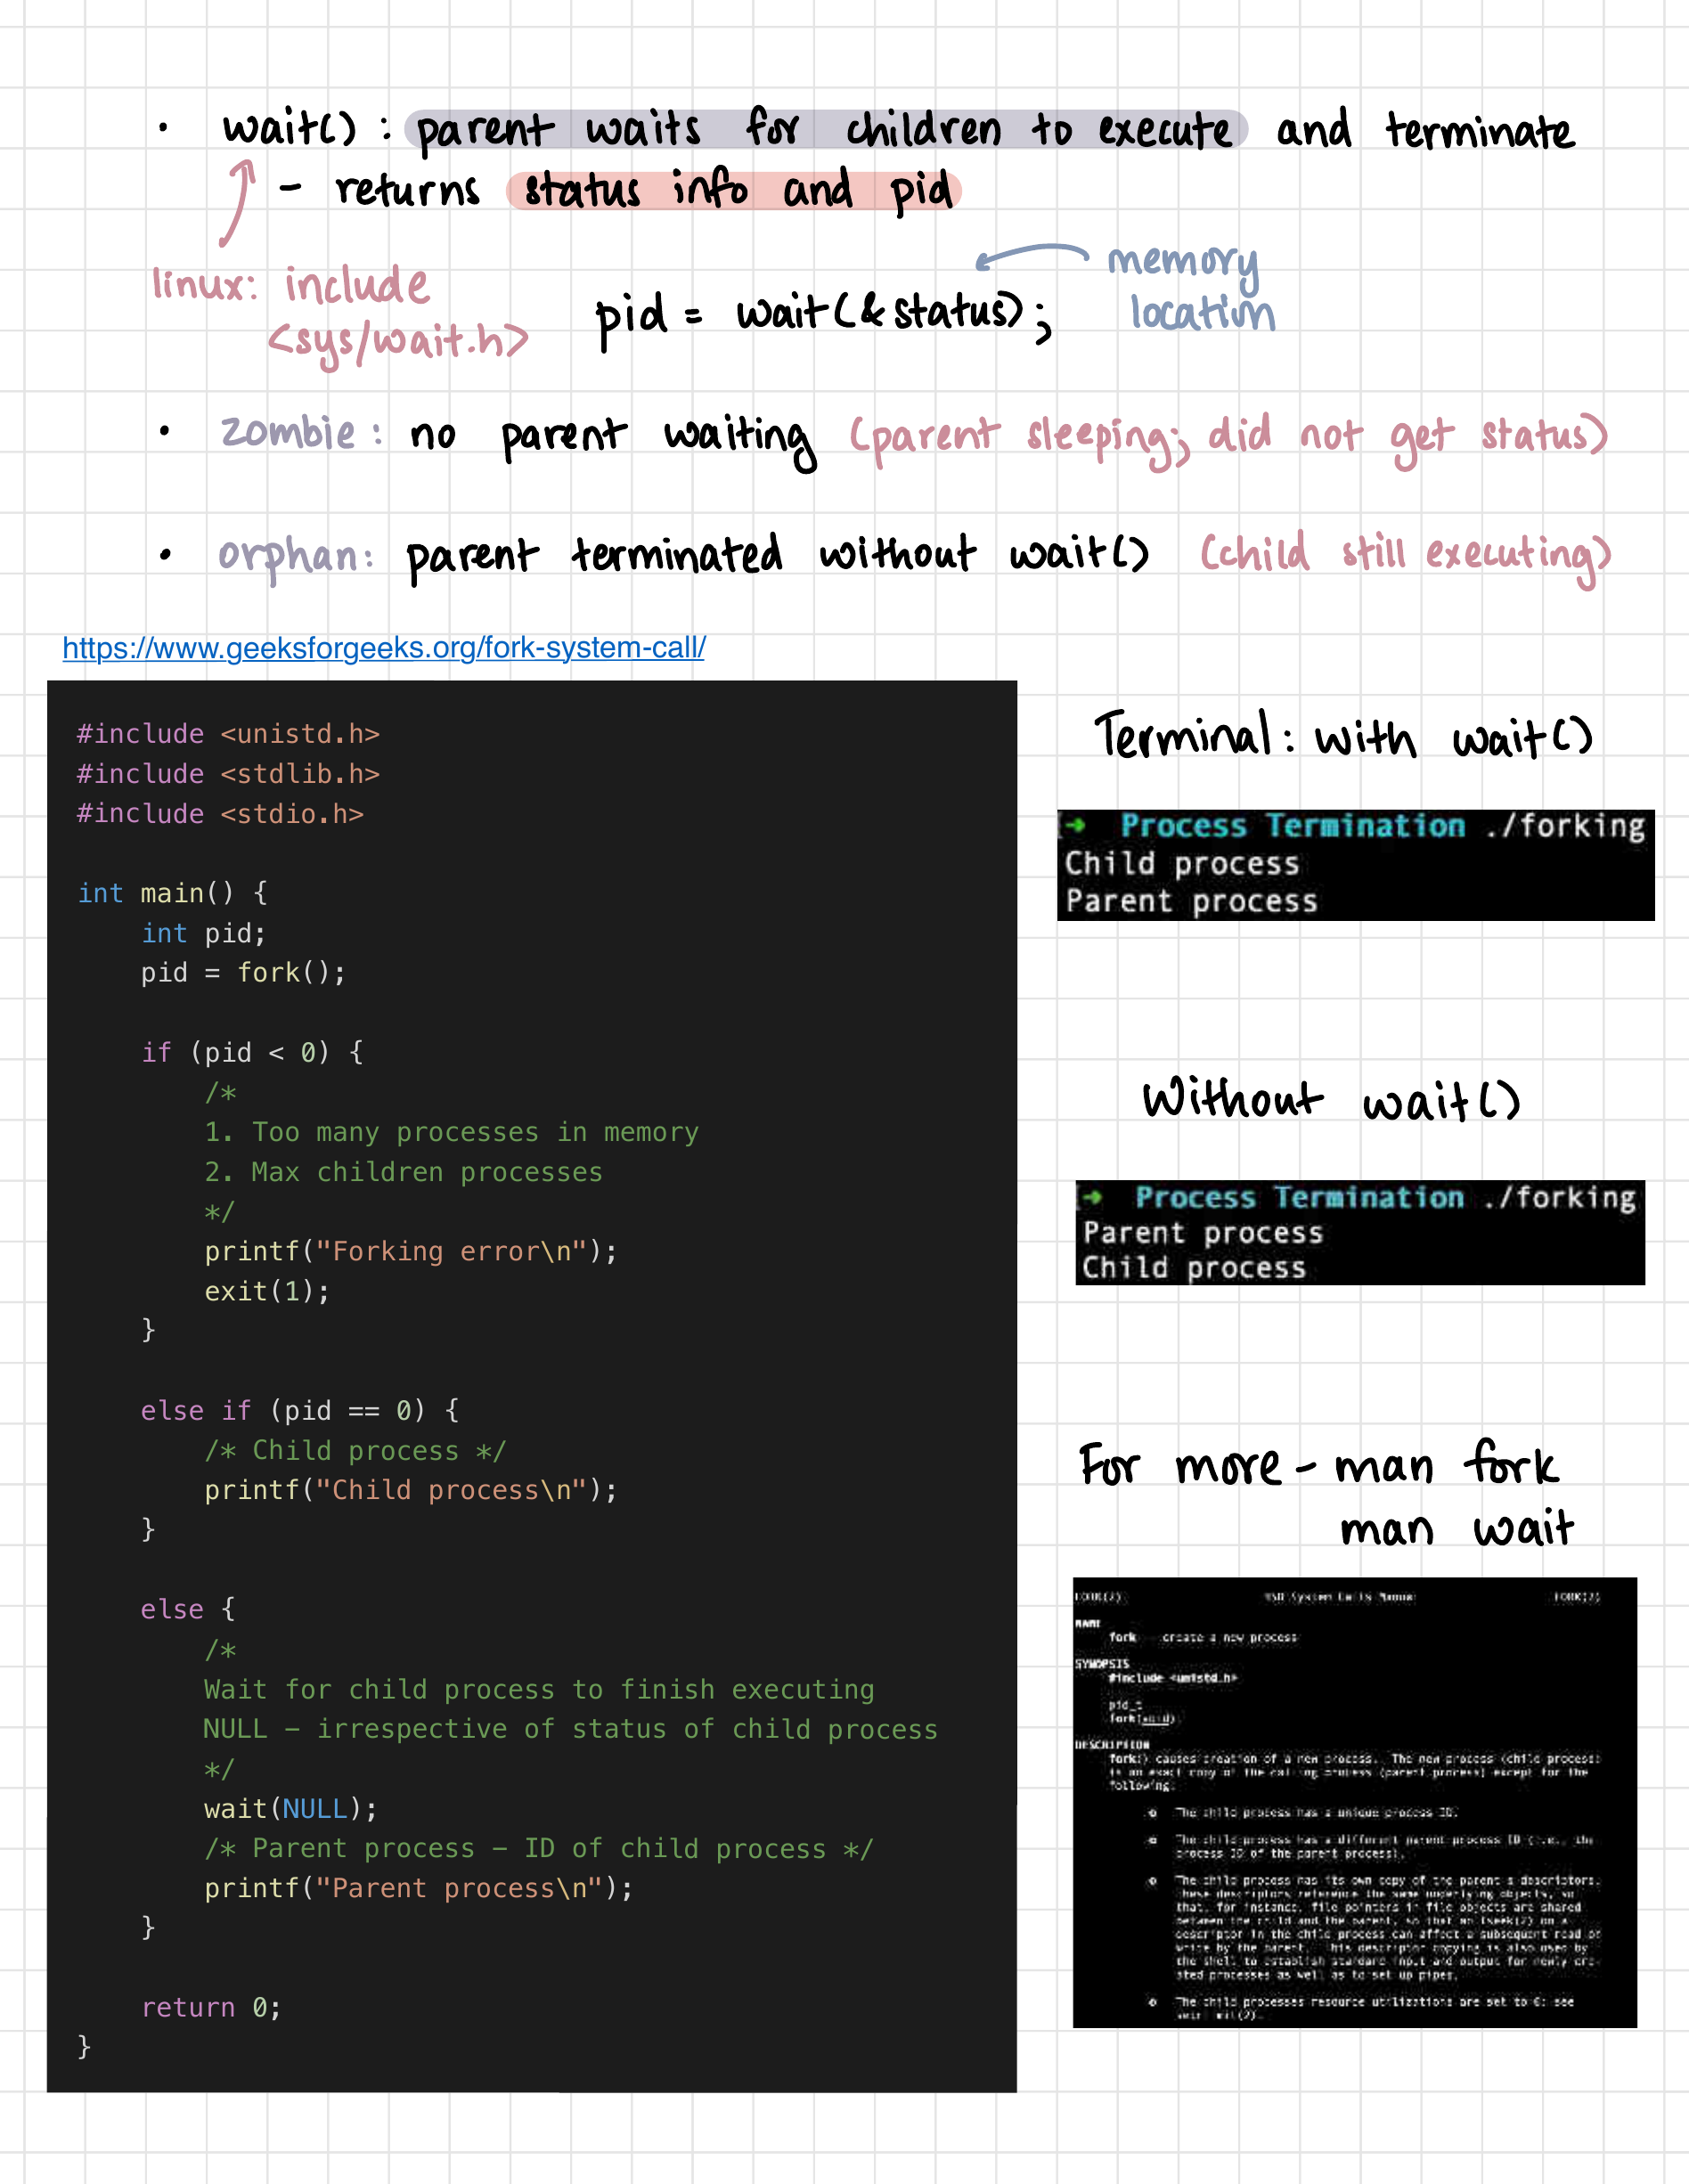 • wait() : parent waits for children to execute and terminate
- returns status info and pid
linux: include
<sys/wait.h>
pid = wait(&status);
memory
location
• zombie: no parent waiting (parent sleeping; did not get status)
• orphan: parent terminated without wait() (child still executing)
https://www.geeksforgeeks.org/fork-system-call/
#include <unistd.h>
#include <stdlib.h>
#include <stdio.h>
int main() {
int pid;
pid = fork();
if (pid < 0) {
/*
1. Too many processes in memory
2. Max children processes
*/
printf("Forking error\n");
exit(1);
}
else if (pid == 0) {
/* Child process */
printf("Child process\n");
}
else {
/*
Wait for child process to finish executing
NULL – irrespective of status of child process
*/
wait(NULL);
/* Parent process – ID of child process */
printf("Parent process\n");
}
return 0;
}
Terminal: with wait()
→ Process Termination ./forking
Child process
Parent process
Without wait()
→ Process Termination ./forking
Parent process
Child process
For more - man fork
man wait
FORK(2) BSD System Calls Manual FORK(2)
NAME
fork create a new process
SYNOPSIS
#include <unistd.h>
pid_t
fork(void)
DESCRIPTION
fork() causes creation of a new process. The new process (child process)
is an exact copy of the calling process (parent process) except for the
following:
o The child process has a unique process ID.
o The child process has a different parent process ID (i.e., the
process ID of the parent process).
o The child process has its own copy of the parent's descriptors.
These descriptors reference the same underlying objects, so
that, for instance, file pointers in file objects are shared
between the child and the parent, so that an lseek(2) on a
descriptor in the child process can affect a subsequent read or
write by the parent. This descriptor copying is also used by
the shell to establish standard input and output for newly cre-
ated processes as well as to set up pipes.
o The child processes resource utilizations are set to 0; see